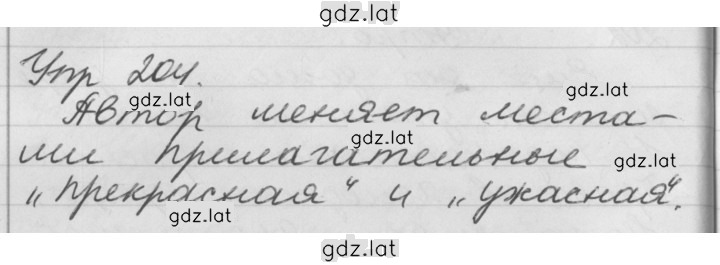 gdz.lat
Упр 204.
gdz.lat
Автор меняет места-
gdz.lat
gdz.lat
ми прилагательные
gdz.lat
„прекрасная“ и „ужасная“.
gdz.lat
gdz.lat